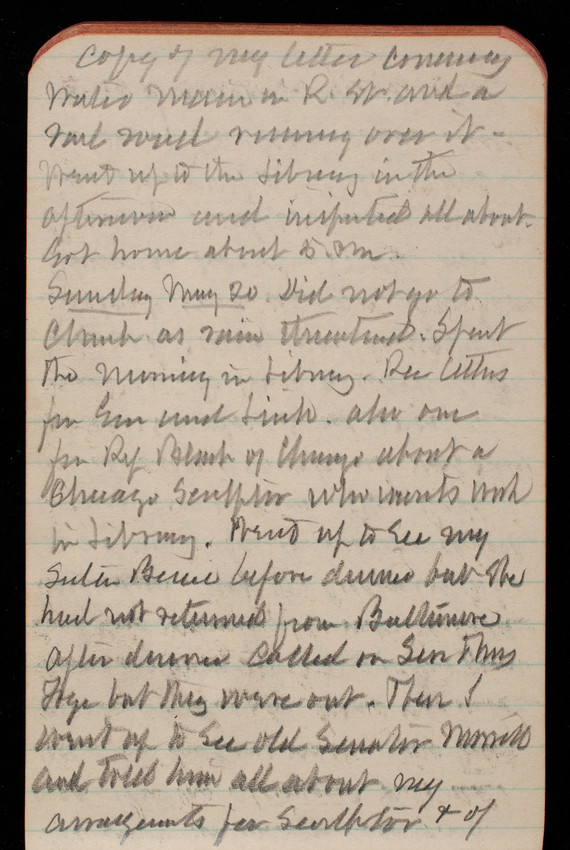 Copy of my letter concerning
Water Main in R. St. and a
rail road running over it -
Went up to the Library in the
afternoon and inspected all about.
Got home about 5 P.m.
Sunday May 20. Did not go to
Church as rain threatened. Spent
the morning in Library. Rec letters
fm Gen and also one
fm of Chicago about a
Chicago Sculptor who wants work
in Library. Went up to see my
Sister before dinner but she
had not returned from Baltimore
after dinner called on Gen Thos
but they were out. Then I
went up to see old Senator Morrill
and told him all about my
arrangements for Sculptor & of